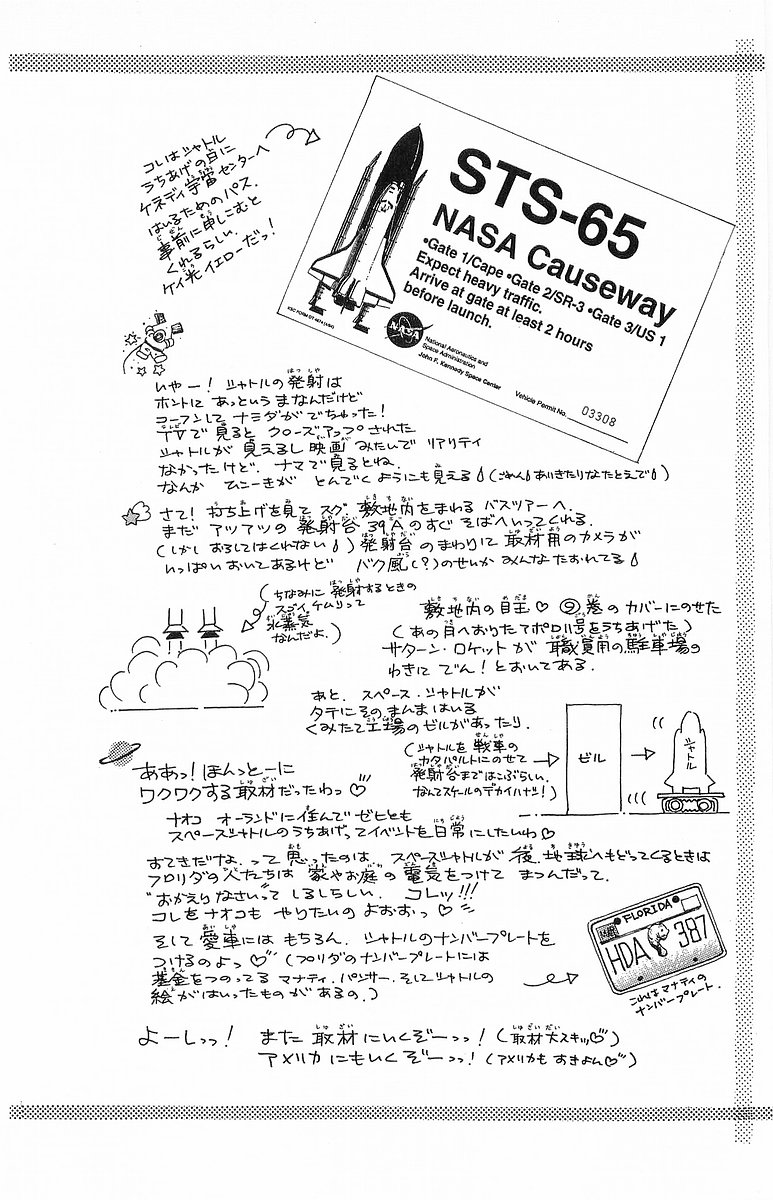 コレはシャトル
うちあげの日に
ケネディ宇宙センターへ
はいるためのパス。
事前に申しこむと
くれるらしい。
ケイ光イエローだっ!
STS-65
NASA Causeway
•Gate 1/Cape •Gate 2/SR-3 •Gate 3/US 1
Expect heavy traffic.
Arrive at gate at least 2 hours
before launch.
NASA
National Aeronautics and
Space Administration
John F. Kennedy Space Center
Vehicle Permit No. 03308
いやー! シャトルの発射は
ホントに あっというまなんだけど
コーフンして ナミダがでちゃった!
TVで見ると クローズアップされた
シャトルが 見えるし 映画 みたいで リアリティ
なかったけど、ナマで見るとね、
なんか ひこーきが とんでくようにも見える(ごめん ありきたりなたとえで)
さて! 打ち上げを見て スグ、敷地内をまわる バスツアーへ。
まだ アツアツの 発射台 39Aのすぐ そばへいってくれる。
(しかし おろしてはくれない) 発射台 のまわりに 取材用のカメラが
いっぱいおいてあるけど バク風(?)のせいか みんなたおれてる
(ちなみに 発射するときの
スゴイ、ケムリって
水蒸気
なんだよ。)
敷地内の目玉♡ ⑨巻のカバーにのせた
(あの月へおりたアポロ11号をうちあげた)
サターン・ロケットが 職員用の駐車場の
わきに でん! とおいてある。
あと、スペース・シャトルが
タテにそのまんまはいる
くみたて工場のビルがあったり。
(シャトルを 戦車の
カタパルトにのせて
発射台まではこぶらしい。
なんてスケールのデカイハナシ!)
ビル
シャトル
ああっ! ほんっとーに
ワクワクする取材だったわっ♡
ナオコ オーランドに住んで ゼヒとも
スペースシャトルのうちあげってイベントを日常にしたいわ♡
すてきだけな、って思ったのは、スペースシャトルが後、地球へもどってくるときは
フロリダの人たちは 家やお庭の 電気をつけて まつんだって。
"おかえりなさい"って しるしらしい。コレッ!!!
コレをナオコも やりたいのよおおっ♡
そして愛車には もちろん、シャトルのナンバープレートを
つけるのよっ♡(フロリダのナンバープレートには
基金をつのってる マナティ、パンサー、そしてシャトルの
絵がはいったものがあるの。)
FLORIDA
HDA 387
これはマナティの
ナンバープレート。
よーしっっ! また 取材にいくぞーっっ! (取材大スキッ♡)
アメリカにもいくぞーっっ! (アメリカもすきよん♡)